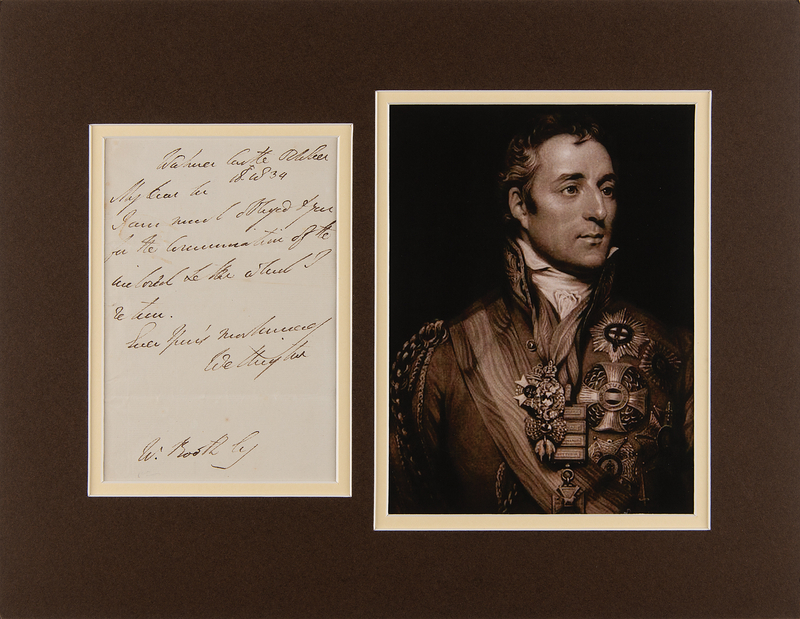 Walmer Castle October
18 1834
My dear Sir
I am much obliged to you
for the Communication of the
inclosed Letter which I
return.
Ever Yours most sincerely
Wellington
W. Booth Esq